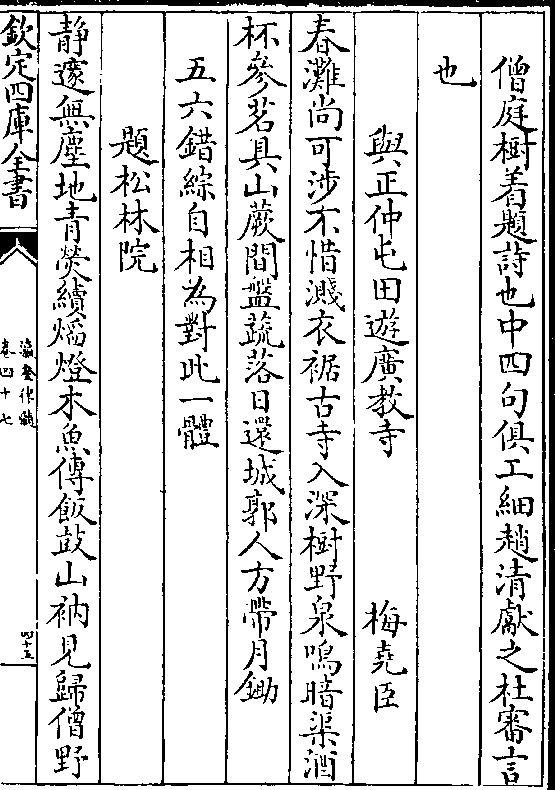 僧庭樹着題詩也中四句俱工細趙清獻之杜審言
也
與正仲屯田遊廣教寺　梅堯臣
春灘尚可涉不惜濺衣裾古寺入深樹野泉鳴暗渠酒
杯參茗具山蕨間盤蔬落日還城郭人方帶月鋤
五六錯綜自相為對此一體
題松林院
静邃無塵地青熒續熖燈木魚傳飯鼓山衲見歸僧野
欽定四庫全書
瀛奎律髓
卷四十七
四十五